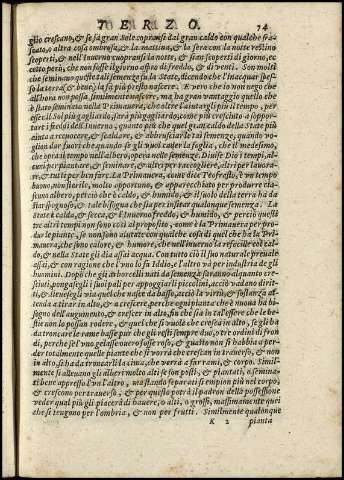 TERZO. 74
glio crescano, & se fa gran Sole copransi dal gran caldo con qualche fra-
scato, o altra cosa ombrosa, & la mattina, & la sera con la notte restino
scoperti, & nell'Inuerno cuopransi la notte, & sian scoperti di giorno, ec
cetto però, che non fosse il giorno aspro di freddo, & di venti. Son molti
che seminano queste tali semenze su la State, dicendo che l'inacquar spes-
so la terra (& bene) la fa più presto nascere. E vero che io non nego che
all'hora non possa similmente nascere, ma ha gran vantaggio quello che
è stato seminato nella Primauera, che oltre l'aiutargli più il tempo, per
esser il Sol più gagliardo, sarà più gagliardo, come più cresciuto a soppor-
tare i freddi dell'Inuerno, quanto più che quel gran caldo della State più
aiuta a corrompere, & scaldare, & abbrusciar le tai semenze, quando vo-
glion dar fuori che quando si gli vuol cauar la foglia, che il medesimo,
che opra il tempo nell'albero, opera nella semenza. Diuise Dio i tempi, al-
cuni per piantare, & seminare, & altri per raccogliere, altri per lauora-
re, & tutti per ben fare. La Primauera, come dice Teofrasto, è un tempo
buono, non sterile, molto opportuno, & apparecchiato per produrre cia-
scuno albero, perciò che è caldo, & humido, & il suolo della terra ha da
star bisognoso, & tale bisogna che sia per insitar qualunque semenza. La
State è calda, & secca, & l'Inuerno freddo, & humido, & perciò questi
tre altri tempi non sono così al proposito, come è la Primauera per pro-
dur le piante, se non sono aiutate con qualche cosa di quel che ha la Pri-
mauera, che sono calore, & humore, che nell'inuerno la rifocille col cal-
do, & nella State gli dia assai acqua. Con tutto ciò il suo naturale preuale
assai, & con ragione che l'un lo fa Iddio, e l'altro va per industria de gli
huomini. Dopo che gli arborcelli nati da semenza saranno alquanto cre-
sciuti, pongasegli i suoi pali per appoggiarli piccolini, acciò vadano dirit-
ti, & lieuisegli via quel che nasce da basso, acciò la virtù, & sostanza
attenda a tirar in alto, & a crescere, perche ogni pianta che è nuoua ha bi-
sogno dell'augumento, & crescer in alto, fin che sia in tal essere che le be-
stie non lo possan rodere, & quel che si vuole che cresca in alto, se gli ha
da troncar le rame basse pur che gli resti sempre due, o tre, o più rami ver-
di, perche se'l vno gelasse ouero fosse roso, & guasto non si habbia a per-
der totalmente quelle piante che si vorrà che crescan in traverso, & non
in alto, si ha da troncar li la cima, che così verrà a far rami, & corpo. Simil-
mente s'alleuano gli alberi molto alti se son posti, & piantati, o semina-
ti bene appresso l'un l'altro, ma stando separati si empion più nel corpo,
& crescono per trauerso, & per questo potrà il padron della possessione
veder qual più gli piacerà di hauere, o alti, o grossi, massimamente quei
che si tengono per l'ombria, & non per frutti. Similmente qualonque
K 2 pianta